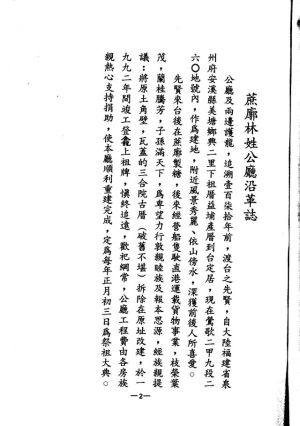 蔗廍林姓公廳沿革誌
公廳及兩邊護龍，追溯壹百柒拾年前，渡台之先賢，自大陸福建省泉
州府安溪縣美塘鄉興二里下祖厝益埔產厝到台定居，現在鶯歌二甲九段二
六〇地號內，作爲建地，附近風景秀麗、依山傍水，深獲前後人所喜愛。
先賢來台後在蔗廍製糖，後來經營船隻駛直港運載貨物事業，枝榮葉
茂，蘭桂騰芳，子孫滿天下，爲卑望力行敦親睦族及報本思源，經族親提
議：將原土角壁，瓦蓋的三合院古厝（破舊不堪）拆除在原址改建，於一
九九二年間竣工登龕上祖牌，愼終追遠，歡祀綱常，公廳工程費由各房族
親熱心支持捐助，使本廳順利重建完成，定爲每年正月初三日爲祭祖大典。
—2—